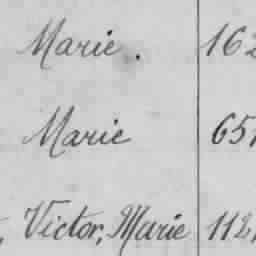 Marie. 162
Marie 651
, Victor, Marie 112